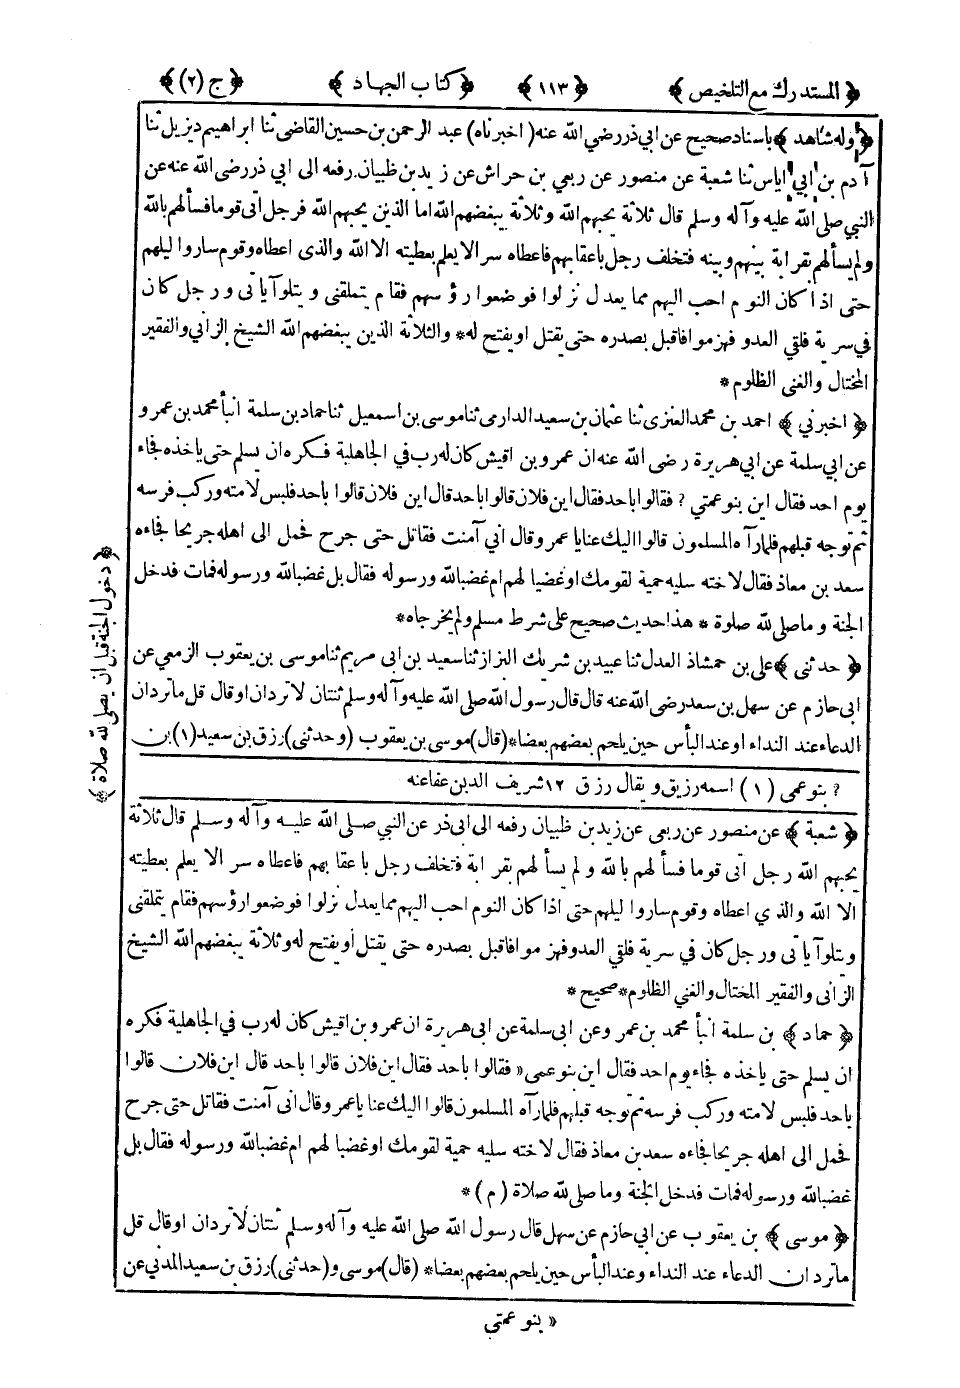 ﴿المستدرك مع التلخيص﴾ ﴿١١٣﴾ ﴿كتاب الجهاد﴾ ﴿ج (٢)﴾
﴿وله شاهد﴾ باسناد صحيح عن ابي ذر رضي الله عنه (اخبرناه) عبد الرحمن بن حسين القاضي ثنا ابراهيم ديزيل ثنا
آدم بن ابي اياس ثنا شعبة عن منصور عن ربعي بن حراش عن زيد بن ظبيان رفعه الى ابي ذر رضي الله عنه عن
النبي صلى الله عليه وآله وسلم قال ثلاثة يحبهم الله وثلاثة يبغضهم الله اما الذين يحبهم الله فرجل اتى قوما فسألهم بالله
ولم يسألهم بقرابة بينهم وبينه فتخلف رجل باعقابهم فاعطاه سرا لا يعلم بعطيته الا الله والذى اعطاه وقوم ساروا ليلهم
حتى اذا كان النوم احب اليهم مما يعدل نزلوا فوضعوا رؤسهم فقام يتملقنى ويتلو آياتى ورجل كان
في سرية فلقي العدو فهزموا فاقبل بصدره حتى يقتل او يفتح له* والثلاثة الذين يبغضهم الله الشيخ الزاني والفقير
المختال والغنى الظلوم *
﴿اخبرني﴾ احمد بن محمد العنزى ثنا عثمان بن سعيد الدارمى ثنا موسى بن اسمعيل ثنا حماد بن سلمة انبأ محمد بن عمرو
عن ابي سلمة عن ابي هريرة رضى الله عنه ان عمرو بن اقيش كان له رب في الجاهلية فكره ان يسلم حتى ياخذه فجاء
يوم احد فقال اين بنو عمتي ؟ فقالوا باحد فقال اين فلان قالوا باحد قال اين فلان قالوا باحد فلبس لامته وركب فرسه
ثم توجه قبلهم فلما رآه المسلمون قالوا اليك عنا يا عمرو قال اني آمنت فقاتل حتى جرح فحمل الى اهله جريحا فجاءه
سعد بن معاذ فقال لاخته سليه حمية لقومك او غضبا لهم ام غضبا لله ورسوله فقال بل غضبا لله ورسوله فمات فدخل
الجنة وما صلى لله صلوة * هذا حديث صحيح على شرط مسلم ولم يخرجاه*
﴿حدثنى﴾ على بن حمشاذ العدل ثنا عبيد بن شريك البزاز ثنا سعيد بن ابى مريم ثنا موسى بن يعقوب الزمعي عن
ابي حازم عن سهل بن سعد رضى الله عنه قال قال رسول الله صلى الله عليه وآله وسلم ثنتان لا تردان او قال قل ما تردان
الدعاء عند النداء او عند البأس حين يلحم بعضهم بعضا* (قال) موسى بن يعقوب (وحدثنى) رزق بن سعيد (١) بن
؟ بنو عمى (١) اسمه رزيق ويقال رزق ١٢ شريف الدين عفا عنه
﴿شعبة﴾ عن منصور عن ربعى عن زيد بن ظبيان رفعه الى ابى ذر عن النبي صلى الله عليه وآله وسلم قال ثلاثة
يحبهم الله رجل اتى قوما فسألهم بالله ولم يسألهم بقرابة فتخلف رجل باعقابهم فاعطاه سرا لا يعلم بعطيته
الا الله والذي اعطاه وقوم ساروا ليلهم حتى اذا كان النوم احب اليهم مما يعدل نزلوا فوضعوا رؤسهم فقام يتملقنى
ويتلو آياتى ورجل كان في سرية فلقي العدو فهزموا فاقبل بصدره حتى يقتل أو يفتح له وثلاثة يبغضهم الله الشيخ
الزانى والفقير المختال والغني الظلوم* صحيح *
﴿حماد﴾ بن سلمة أنبأ محمد بن عمر وعن ابى سلمة عن ابى هريرة ان عمرو بن اقيش كان له رب في الجاهلية فكره
ان يسلم حتى ياخذه فجاء يوم احد فقال اين بنو عمى « فقالوا باحد فقال اين فلان قالوا باحد قال اين فلان قالوا
باحد فلبس لامته وركب فرسه ثم توجه قبلهم فلما رآه المسلمون قالوا اليك عنا يا عمرو قال انى آمنت فقاتل حتى جرح
فحمل الى اهله جريحا فجاءه سعد بن معاذ فقال لاخته سليه حمية لقومك او غضبا لهم ام غضبا لله ورسوله فقال بل
غضبا لله ورسوله فمات فدخل الجنة وما صلى لله صلاة (م) *
﴿موسى﴾ بن يعقوب عن ابي حازم عن سهل قال رسول الله صلى الله عليه وآله وسلم ثنتان لا تردان او قال قل
ما تردان الدعاء عند النداء وعند البأس حين يلحم بعضهم بعضا* (قال) موسى و (حدثنى) رزق بن سعيد المدني عن
« بنو عمتي
﴿دخول الجنة قبل ان يصلى لله صلاة﴾